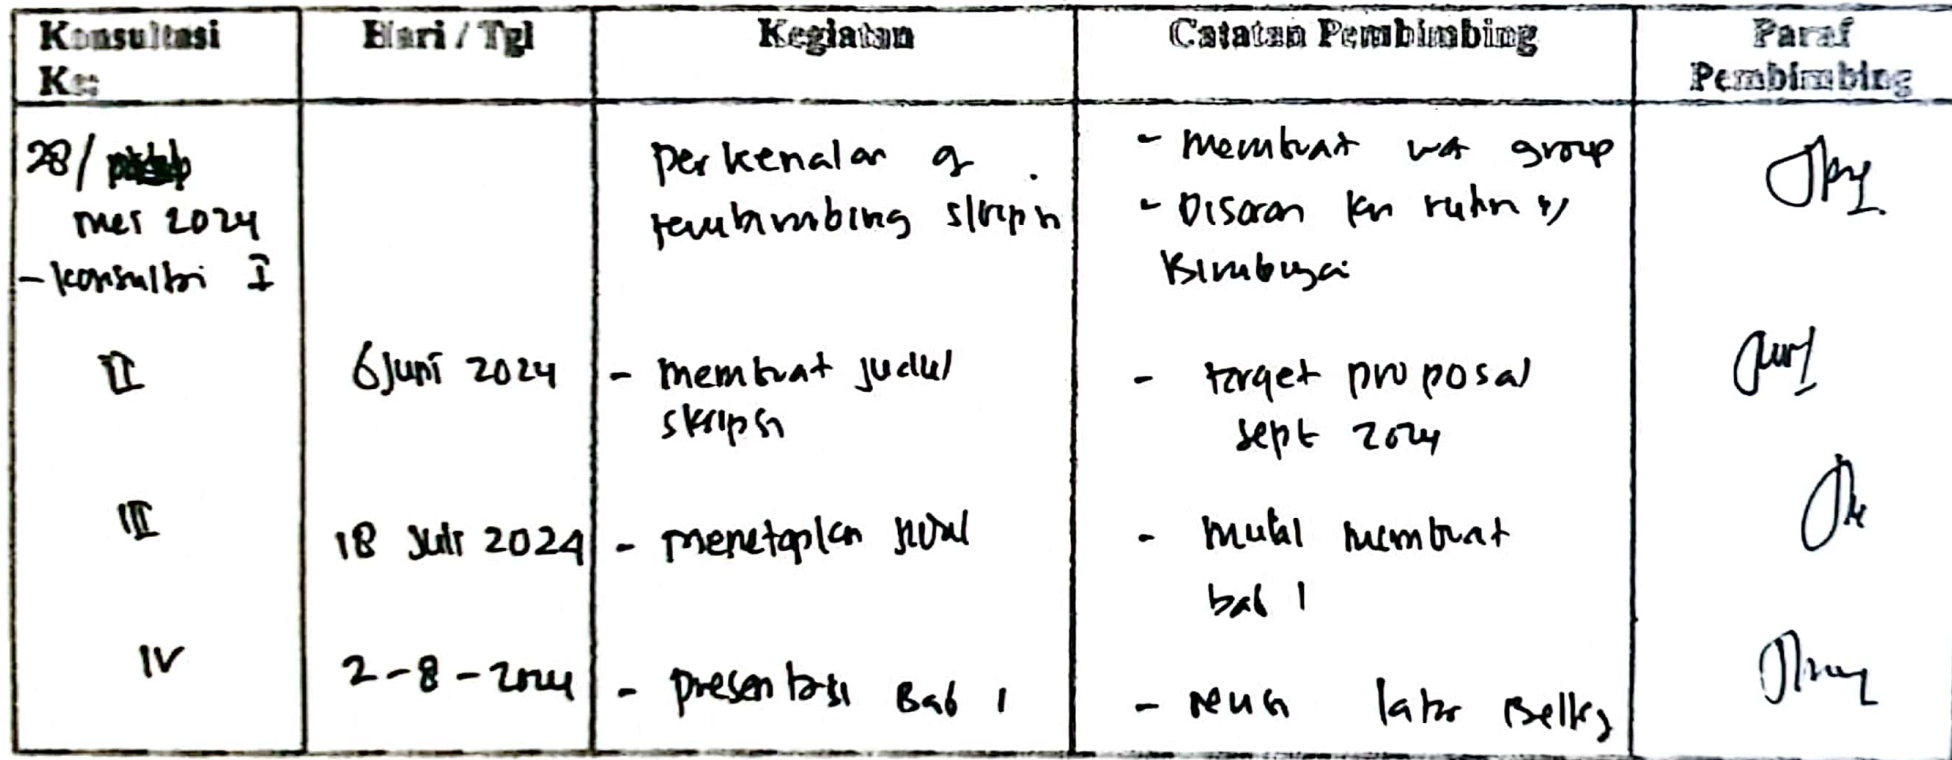 Konsultasi Ke: Hari / Tgl Kegiatan Catatan Pembimbing Paraf Pembimbing
28/
mei 2024
- konsultsi I
perkenalan
pembimbing skripsi
- membuat wa group
- Disaran kn rutin
Bimbingan
II 6 Juni 2024 - membuat judul
skripsi
- target proposal
sept 2024
III 18 Juli 2024 - menetapkan judul
- mulai membuat
bab 1
IV 2-8-2024 - presentasi Bab 1
- revisi latar